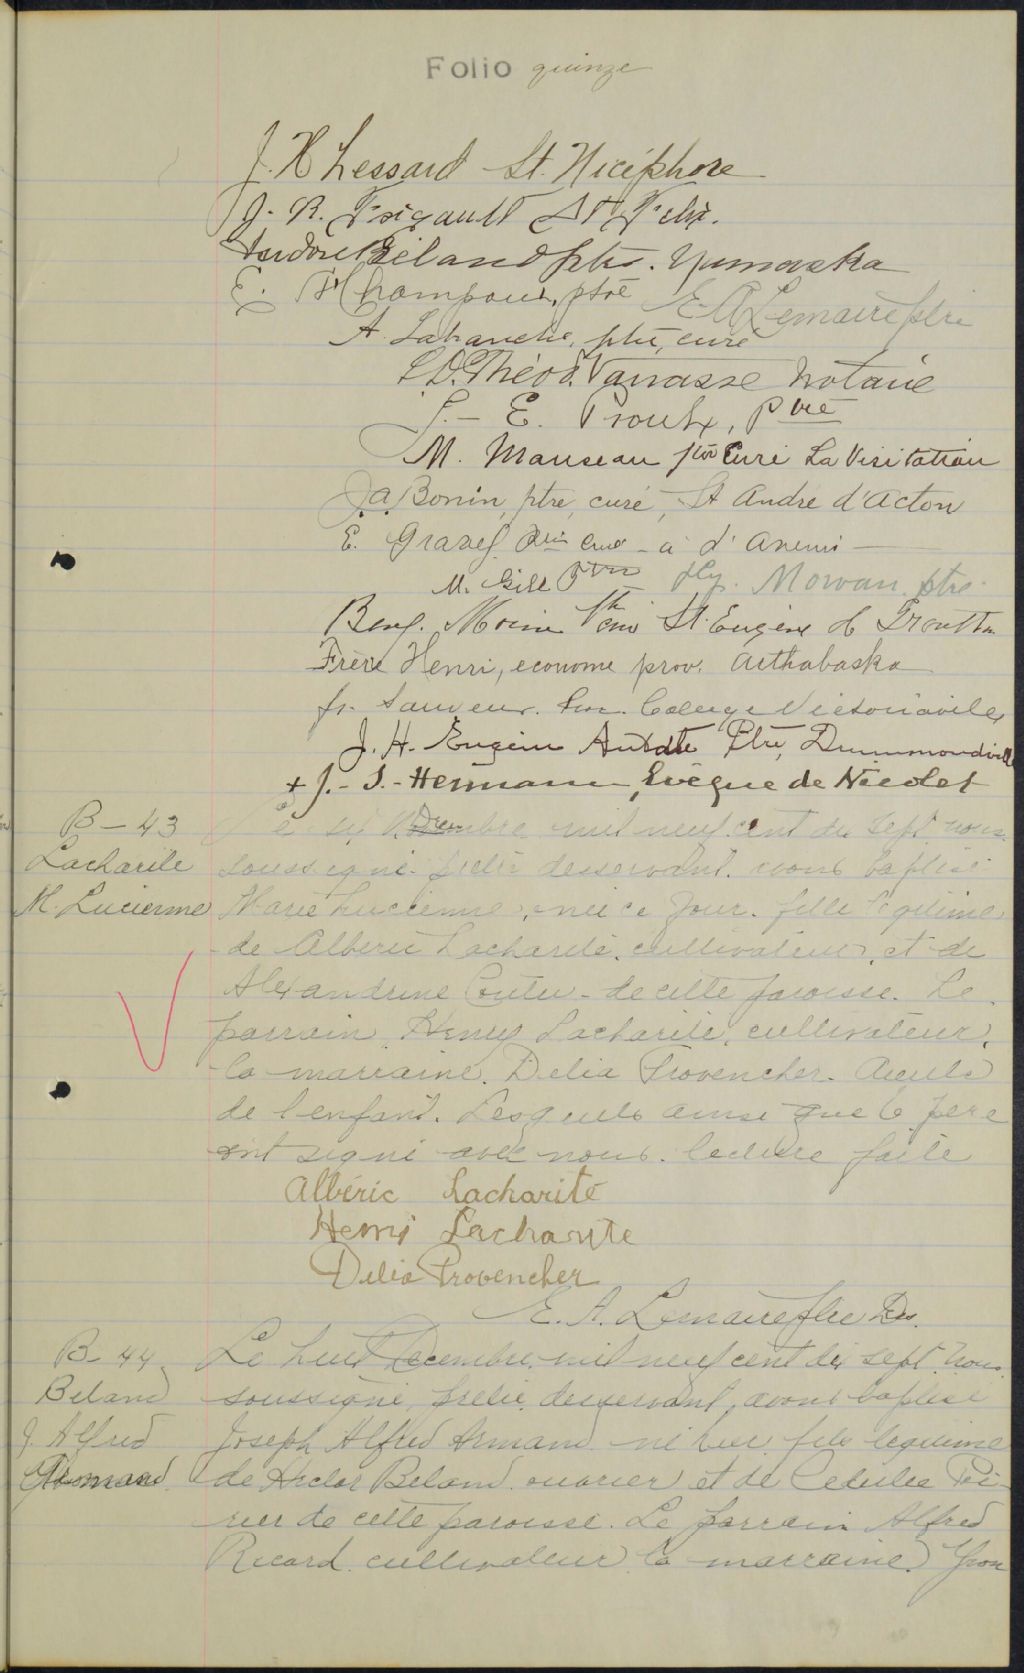 Folio quinze
J. H Lessard St. Nicéphore
J. R. Frigault St Félix.
Isidore Béland ptre. Yamaska
E. Champoux, ptre E. A Lemaire ptre
A. Labranche, ptre, curé
L.D. Théod. Vanasse Notaire
J.-E. Proulx, ptre
M. Manseau ptre Curé La Visitation
J.a. Bonin, ptre, curé, St André d'Acton
E. Gravel ptre curé
M. Gill Ptre Hy. Morvan ptre.
Benj. Moin St. Eugène de Grantham
Frère Henri, econome prov. Arthabaska
fr. Sauveur. College Victoriaville
J. H. Eugène Ptre, Drummondville
+ J.-S.-Hermann, Evêque de Nicolet
B-43
Lacharité
M. Lucienne
Le six Décembre mil neuf cent dix sept nous
soussigné prêtre desservant. avons baptisé
Marie Lucienne, née ce jour. fille légitime
de Alberic Lacharité, cultivateur, et de
Alexandrine Coutu - de cette paroisse. Le
parrain, Henry Lacharité, cultivateur,
la marraine. Delia Provencher. Aieuls
de l'enfant. Lesquels ainsi que le père
ont signé avec nous. lecture faite
Albéric Lacharité
Henri Lacharite
Delia Provencher
E. A. Lemaire ptre Des.
B-44
Beland
J. Alfred
Armand
Le huit Decembre mil neuf cent dix sept nous
soussigné, prêtre desservant, avons baptisé
Joseph Alfred Armand né hier fils legitime
de Hector Beland. ouvrier et de Cedulie Poi-
rier de cette paroisse. Le parrain Alfred
Ricard cultivateur la marraine